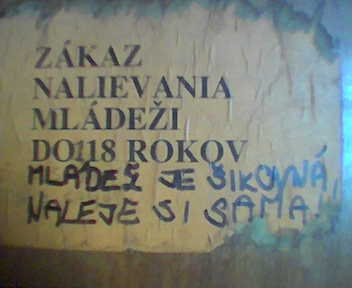 ZÁKAZ
NALIEVANIA
MLÁDEŽI
DO 18 ROKOV
MLÁDEŽ JE ŠIKOVNÁ,
NALEJE SI SAMA!